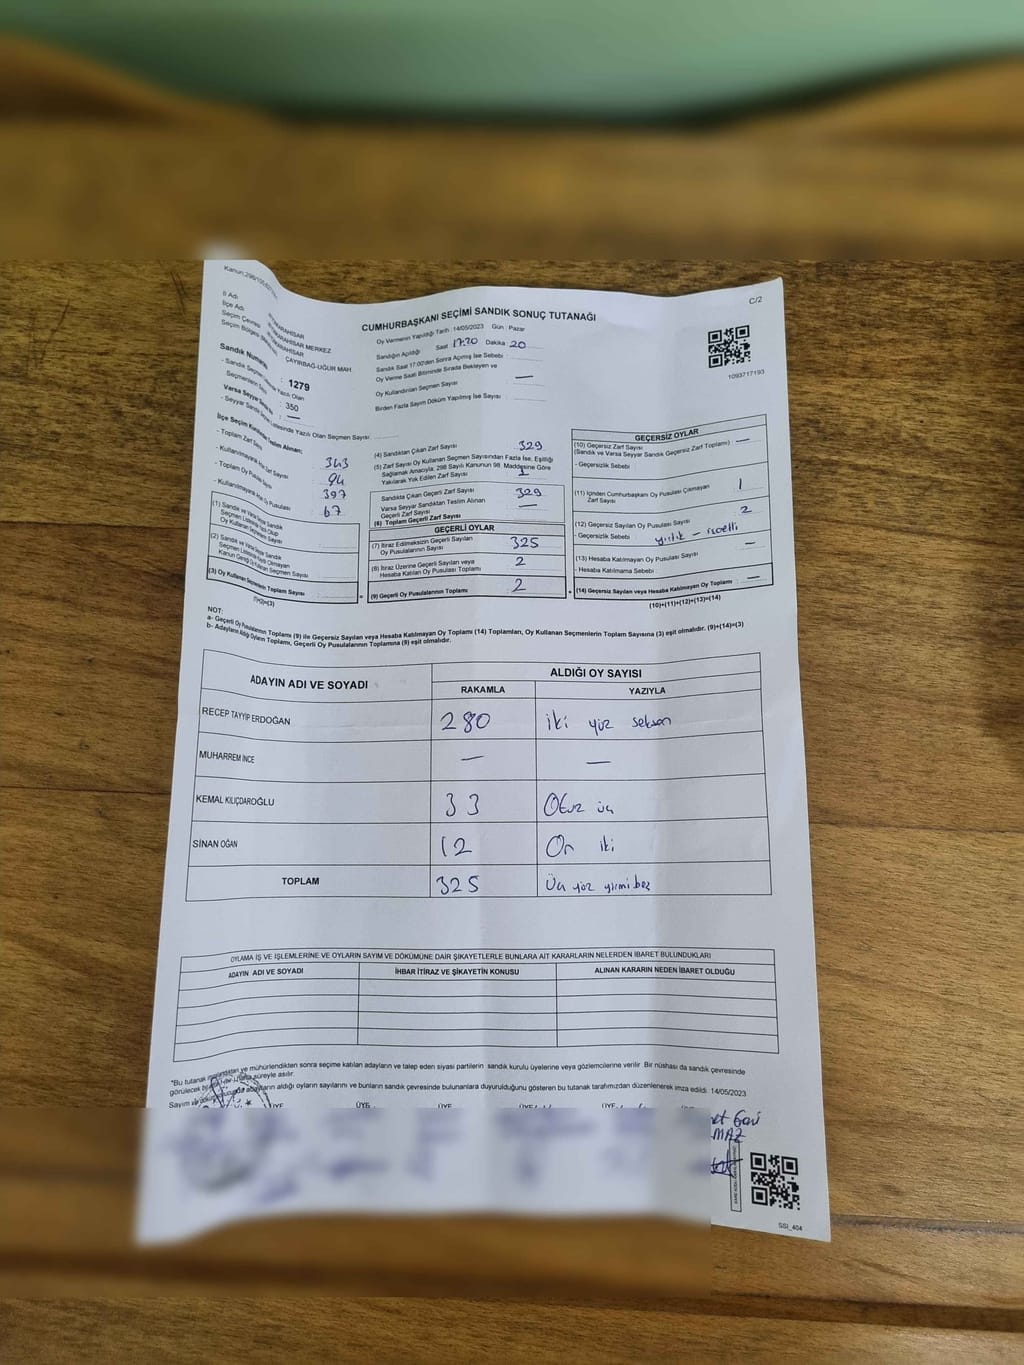 C/2
CUMHURBAŞKANI SEÇİMİ SANDIK SONUÇ TUTANAĞI
İl Adı
İlçe Adı
Seçim Çevresi
Seçim Bölgesi
MERKEZ
ÇAYIRBAĞ-UĞUR MAH.
Sandık Numarası : 1279
: 350
—
Oy Vermenin Yapıldığı Tarih : 14/05/2023 Gün : Pazar
Sandığın Açıldığı Saat 17:20 Dakika : 20
Sandık Saat 17:00'den Sonra Açılmış İse Sebebi :
Oy Verme Saati Bitiminde Sırada Bekleyen ve
Oy Kullandırılan Seçmen Sayısı : —
Birden Fazla Sayım Döküm Yapılmış İse Sayısı :
1093717193
- Toplam Zarf Sayısı 343
- Kullanılmayan Zarf Sayısı 94
- Toplam Oy Pusulası 397
- Kullanılmayan Oy Pusulası 67
(1) Sandık ve Varsa Seyyar Sandık
Seçmen Listesinde Yazılı Olup
Oy Kullanan Seçmen Sayısı
(2) Sandık ve Varsa Seyyar Sandık
Seçmen Listesinde Yazılı Olmayan
Kanun Gereği Oy Kullanan Seçmen Sayısı
(3) Oy Kullanan Seçmenlerin Toplam Sayısı
(1)+(2)=(3)
(4) Sandıktan Çıkan Zarf Sayısı 329
(5) Zarf Sayısı Oy Kullanan Seçmen Sayısından Fazla İse, Eşitliği
Sağlamak Amacıyla, 298 Sayılı Kanunun 98. Maddesine Göre
Yakılarak Yok Edilen Zarf Sayısı 1
Sandıkta Çıkan Geçerli Zarf Sayısı 329
Varsa Seyyar Sandıktan Teslim Alınan
Geçerli Zarf Sayısı —
(6) Toplam Geçerli Zarf Sayısı
GEÇERLİ OYLAR
(7) İtiraz Edilmeksizin Geçerli Sayılan
Oy Pusulalarının Sayısı 325
(8) İtiraz Üzerine Geçerli Sayılan veya
Hesaba Katılan Oy Pusulası Toplamı 2
(9) Geçerli Oy Pusulalarının Toplamı 2
GEÇERSİZ OYLAR
(10) Geçersiz Zarf Sayısı
(Sandık ve Varsa Seyyar Sandık Geçersiz Zarf Toplamı) —
- Geçersizlik Sebebi
(11) İçinden Cumhurbaşkanı Oy Pusulası Çıkmayan
Zarf Sayısı 1
(12) Geçersiz Sayılan Oy Pusulası Sayısı 2
- Geçersizlik Sebebi yırtık –
(13) Hesaba Katılmayan Oy Pusulası Sayısı —
- Hesaba Katılmama Sebebi
(14) Geçersiz Sayılan veya Hesaba Katılmayan Oy Toplamı : —
(10)+(11)+(12)+(13)=(14)
NOT:
a- Geçerli Oy Pusulalarının Toplamı (9) ile Geçersiz Sayılan veya Hesaba Katılmayan Oy Toplamı (14) Toplamları, Oy Kullanan Seçmenlerin Toplam Sayısına (3) eşit olmalıdır. (9)+(14)=(3)
b- Adayların Aldığı Oyların Toplamı, Geçerli Oy Pusulalarının Toplamına (9) eşit olmalıdır.
ADAYIN ADI VE SOYADI ALDIĞI OY SAYISI
RAKAMLA YAZIYLA
RECEP TAYYİP ERDOĞAN 280 iki yüz seksen
MUHARREM İNCE — —
KEMAL KILIÇDAROĞLU 33 Otuz üç
SİNAN OĞAN 12 On iki
TOPLAM 325 Üç yüz yirmi beş
OYLAMA İŞ VE İŞLEMLERİNE VE OYLARIN SAYIM VE DÖKÜMÜNE DAİR ŞİKAYETLERLE BUNLARA AİT KARARLARIN NELERDEN İBARET BULUNDUKLARI
ADAYIN ADI VE SOYADI İHBAR İTİRAZ VE ŞİKAYETİN KONUSU ALINAN KARARIN NEDEN İBARET OLDUĞU
mühürlendikten sonra seçime katılan adayların ve talep eden siyasi partilerin sandık kurulu üyelerine veya gözlemcilerine verilir. Bir nüshası da sandık çevresinde
görülecek bir yere süreyle asılır.
adayların aldığı oyların sayılarını ve bunların sandık çevresinde bulunanlara duyurulduğunu gösteren bu tutanak tarafımızdan düzenlenerek imza edildi. 14/05/2023
ÜYE ÜYE ÜYE ÜYE
SSI_404